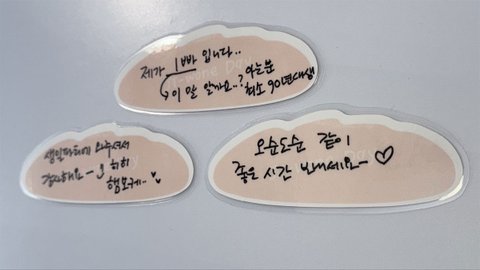 제가 1빠 입니다..
이 말 알까요..? 아는분
최소 90년대생
생일파티에 와주셔서
감사해요~ 히히
행모케..
오순도순 같이
좋은 시간 보내세요~ ♡